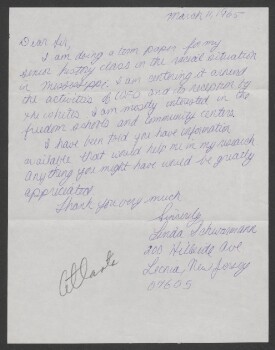 March 11, 1965
Dear Sir,
I am doing a term paper for my
senior history class in the racial situation
in Mississippi. I am centering it around
the activities of COFO and its reception by
the whites. I am mostly interested in the
freedom schools and community centers.
I have been told you have information
available that would help me in my research
Anything you might have would be greatly
appreciated.
Thank you very much
Sincerely,
Linda Schwarmann
203 Hillside Ave
Leonia New Jersey
07605
Atlanta